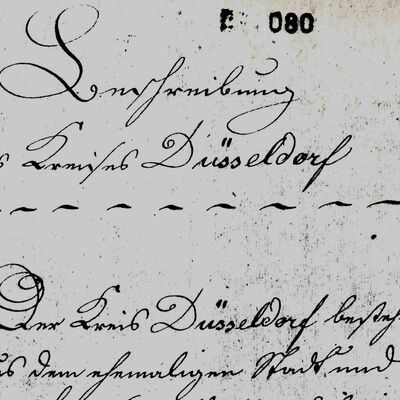 080
Beschreibung
s Kreises Düsseldorf
Der Kreis Düsseldorf besteh
us dem ehemaligen Stadt und